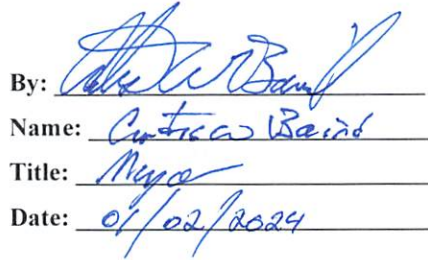 By:
Name: Baird
Title: Mayor
Date: 01/02/2024